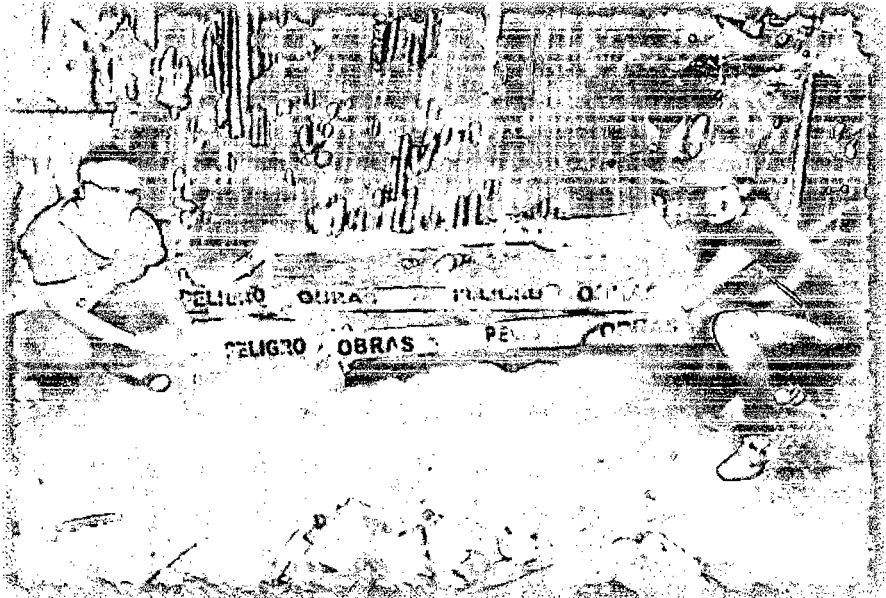 PELIGRO OBRAS PELIGRO OBRAS
PELIGRO OBRAS OBRAS